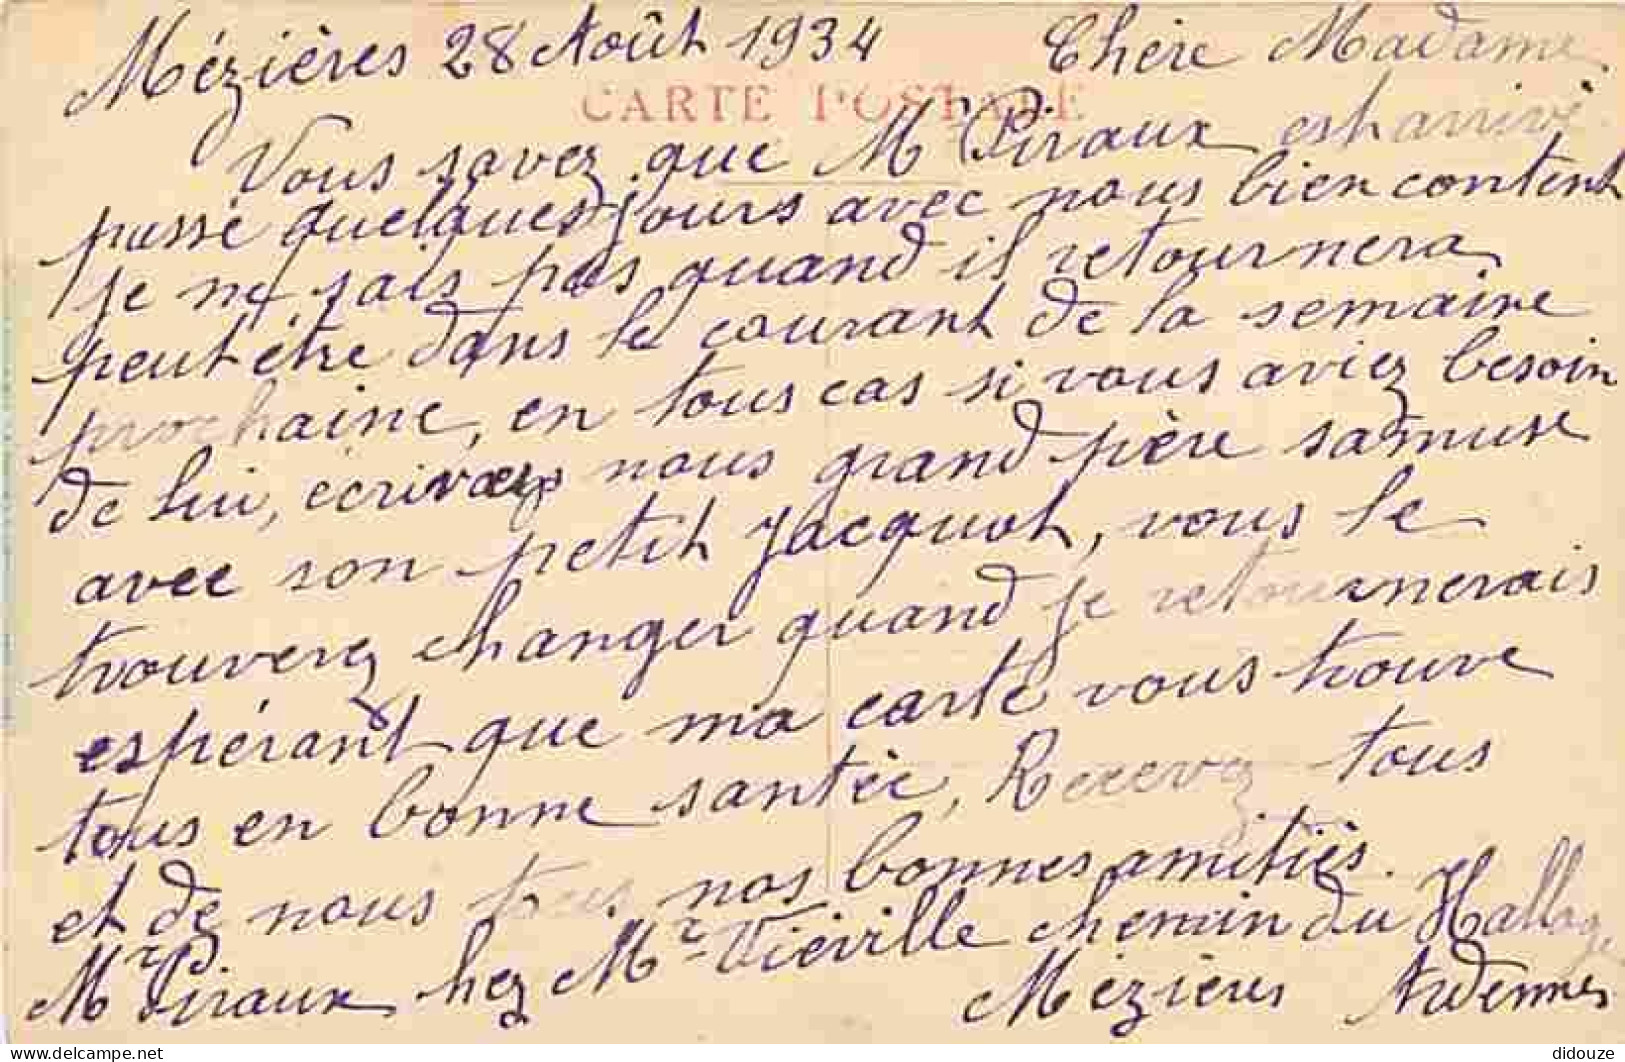 Mézières 28 Août 1934 Chère Madame
CARTE POSTALE
Vous savez que M Piraux est arrivé
passé quelques jours avec nous bien content
je ne sais pas quand il retournera
peut être dans le courant de la semaine
prochaine, en tous cas si vous aviez besoin
de lui, écrivez nous grand père samuse
avec son petit Jacquot, vous le
trouverez changer quand je retournerais
espérant que ma carte vous trouve
tous en bonne santée, Recevez tous
et de nous tous nos bonnes amitiés.
Mr Piraux hez Mr Vieville chemin du Hallage
Mézières Ardennes
didouze